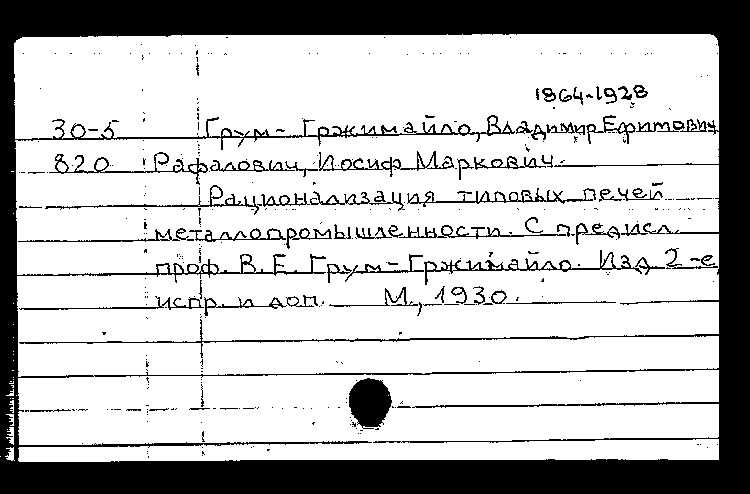 1864-1928
30-5 Грум-Гржимайло, Владимир Ефимович
820 Рафалович, Иосиф Маркович.
Рационализация типовых печей
металлопромышленности. С предисл.
проф. В. Е. Грум-Гржимайло. Изд 2-е,
испр. и доп. М., 1930.